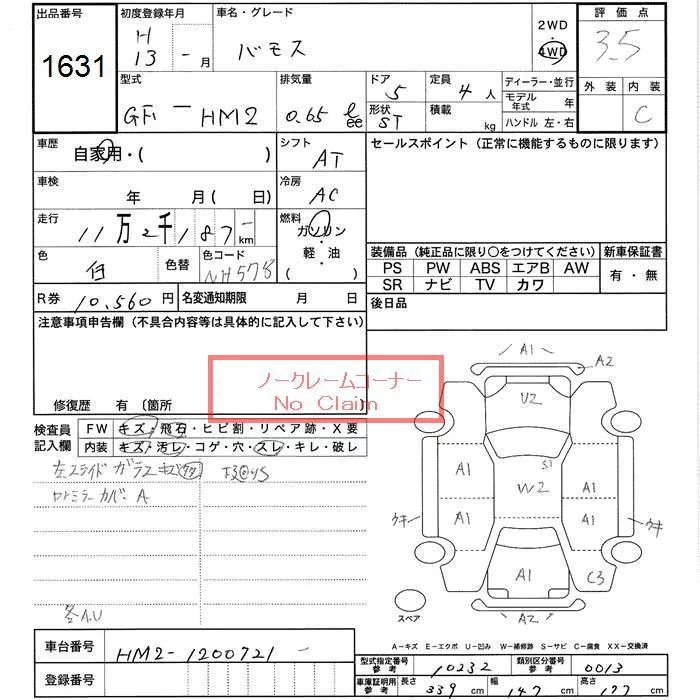 出品番号 初度登録年月 車名・グレード 2WD 評価点
1631 H 13 - 月 バモス 4WD 3.5
型式 排気量 ドア 定員 ディーラー・並行 外装 内装
GF - HM2 0.65 ℓ cc 5 4 人 モデル年式 年 C
形状 ST 積載 kg ハンドル 左・右
車歴 自家用・( ) シフト AT セールスポイント (正常に機能するものに限ります)
車検 年 月 ( 日) 冷房 AC
走行 11万2千187 - km 燃料 ガソリン・軽油 ( )
色 白 色替 色コード NH578
装備品 (純正品に限り〇をつけてください) 新車保証書
PS PW ABS エアB AW 有・無
SR ナビ TV カワ
R券 10,560円 名変通知期限 月 日 後日品
注意事項申告欄 (不具合内容等は具体的に記入して下さい)
ノークレームコーナー
No Claim
修復歴 有 〔箇所
検査員記入欄 FW キズ・飛石・ヒビ割・リペア跡・X要
内装 キズ・汚レ・コゲ・穴・スレ・キレ・破レ
左スライドガラスキズ
ミラーカバーA
A1 A2
V2
S1
A1 W2 A1
ウキ A1 A1 ウキ
A1 C3
A2
スペア
A-キズ E-エクボ U-凹み W-補修跡 S-サビ C-腐食 XX-交換済
車台番号 HM2-1200721 -
登録番号
型式指定番号 参考 10232 類別区分番号 参考 0013
車庫証明用 参考 長さ 339 cm 幅 147 cm 高さ 177 cm